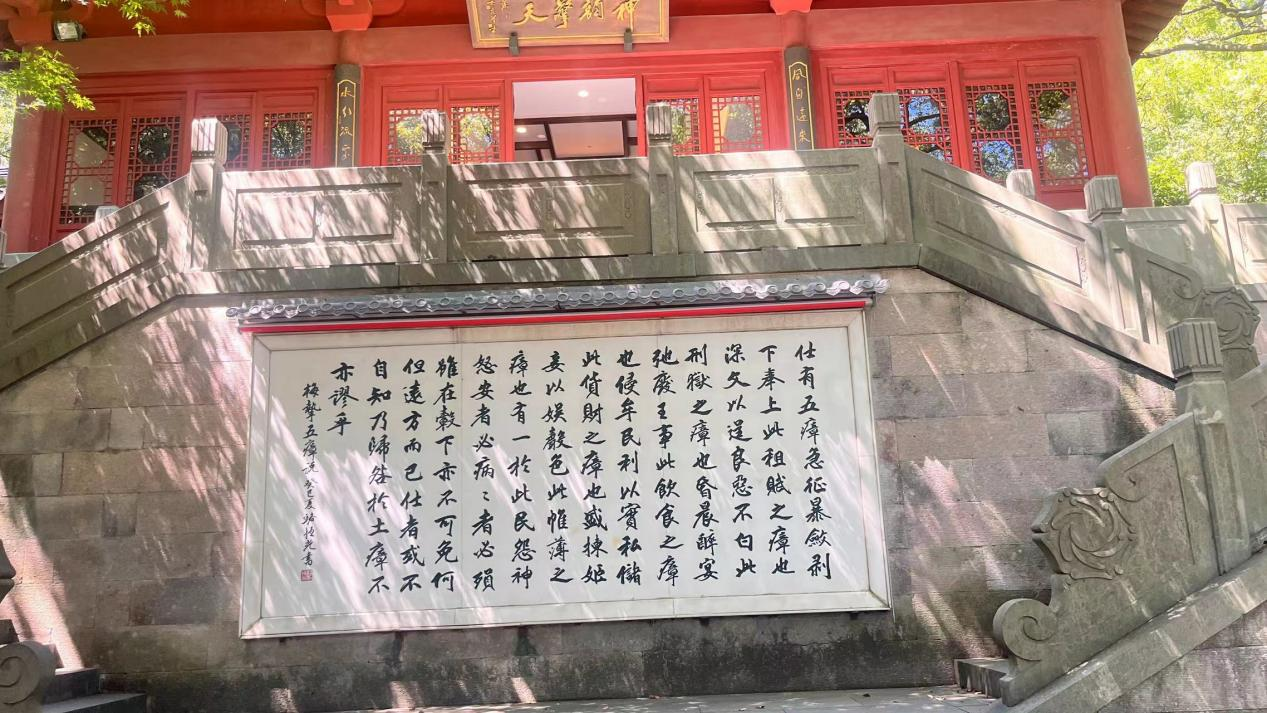 天擎朝神
水紅流字
風自遠來
仕有五瘴急征暴斂剥
下奉上此租賦之瘴也
深文以逞良惡不白此
刑獄之瘴也昏晨醉宴
弛廢王事此飲食之瘴
也侵牟民利以實私儲
此貨財之瘴也盛揀姬
妾以娱聲色此帷薄之
瘴也有一於此民怨神
怒安者必病病者必殞
雖在轂下亦不可免何
但遠方而已仕者或不
自知乃歸咎於土瘴不
亦謬乎
梅摯五瘴说 癸巳夏